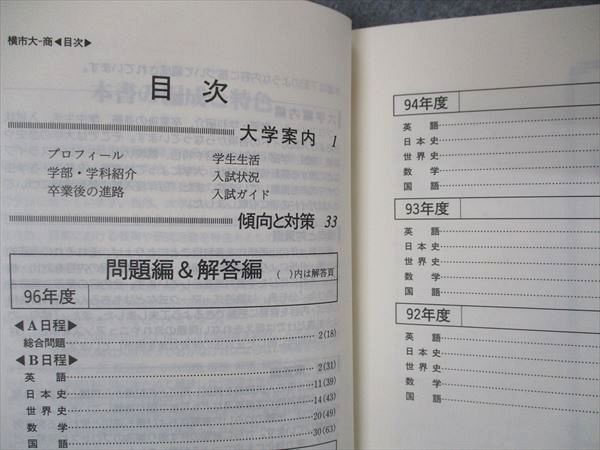 横市大-商◀目次▶
目次
大学案内 1
プロフィール 学生生活
学部・学科紹介 入試状況
卒業後の進路 入試ガイド
傾向と対策 33
問題編&解答編 ( )内は解答頁
96年度
◀A日程▶
総合問題 2(18)
◀B日程▶
英語 2(31)
日本史 11(39)
世界史 14(43)
数学 20(49)
国語 30(63)
94年度
英語
日本史
世界史
数学
国語
93年度
英語
日本史
世界史
数学
国語
92年度
英語
日本史
世界史
数学
国語